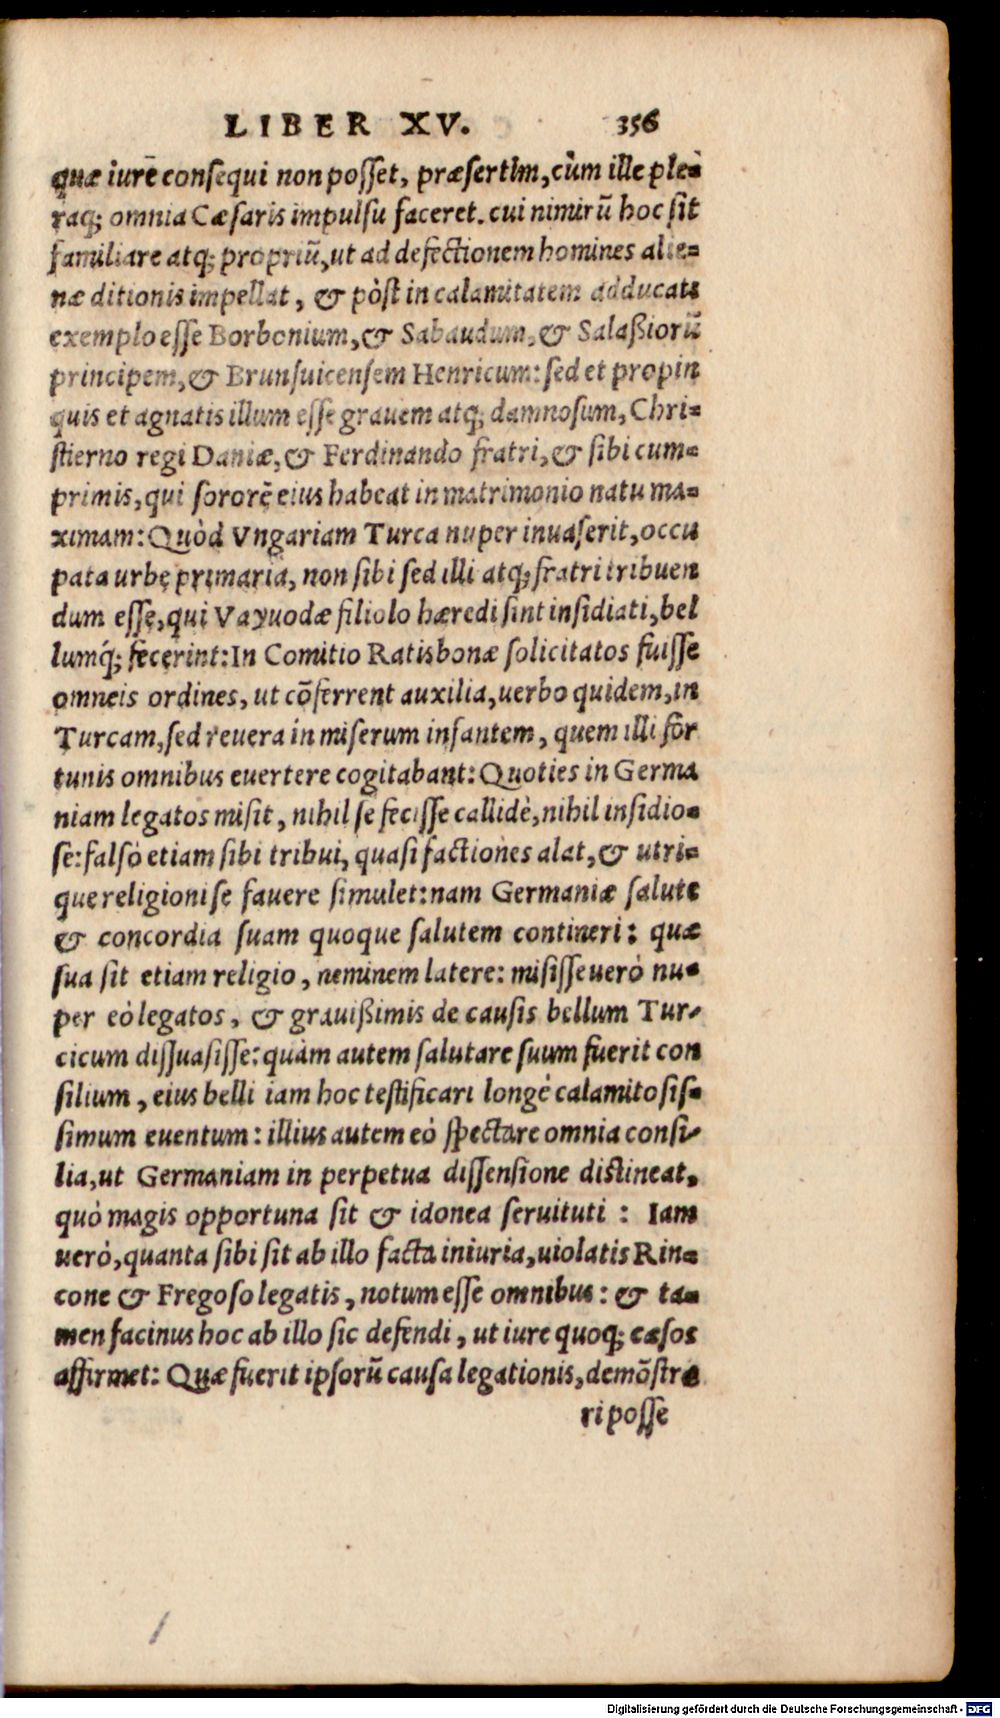 LIBER XV. 356
quæ iurē consequi non posset, præsertim, cùm ille ple=
raq; omnia Cæsaris impulsu faceret. cui nimirū hoc sit
familiare atq; propriū, ut ad defectionem homines alie=
næ ditionis impellat, & pòst in calamitatem adducat:
exemplo esse Borbonium, & Sabaudum, & Salaßiorū
principem, & Brunsuicensem Henricum: sed et propin
quis et agnatis illum esse grauem atq; damnosum, Chri=
stierno regi Daniæ, & Ferdinando fratri, & sibi cum=
primis, qui sororē eius habeat in matrimonio natu ma=
ximam: Quòd Vngariam Turca nuper inuaserit, occu
pata urbe primaria, non sibi sed illi atq; fratri tribuen
dum esse, qui Vayuodæ filiolo hæredi sint insidiati, bel
lumq́; fecerint: In Comitio Ratisbonæ solicitatos fuisse
omneis ordines, ut cōferrent auxilia, uerbo quidem, in
Turcam, sed reuera in miserum infantem, quem illi for
tunis omnibus euertere cogitabant: Quoties in Germa
niam legatos misit, nihil se fecisse callidè, nihil insidio=
se: falsò etiam sibi tribui, quasi factiones alat, & utri=
que religioni se fauere simulet: nam Germaniæ salute
& concordia suam quoque salutem contineri: quæ
sua sit etiam religio, neminem latere: misisse uerò nu=
per eò legatos, & grauißimis de causis bellum Tur=
cicum dissuasisse: quàm autem salutare suum fuerit con
silium, eius belli iam hoc testificari longè calamitosis=
simum euentum: illius autem eò spectare omnia consi=
lia, ut Germaniam in perpetua dissensione distineat,
quò magis opportuna sit & idonea seruituti: Iam
uerò, quanta sibi sit ab illo facta iniuria, uiolatis Rin=
cone & Fregoso legatis, notum esse omnibus: & ta=
men facinus hoc ab illo sic defendi, ut iure quoq; cæsos
affirmet: Quæ fuerit ipsorū causa legationis, demōstra
ri posse
Digitalisierung gefördert durch die Deutsche Forschungsgemeinschaft - DFG